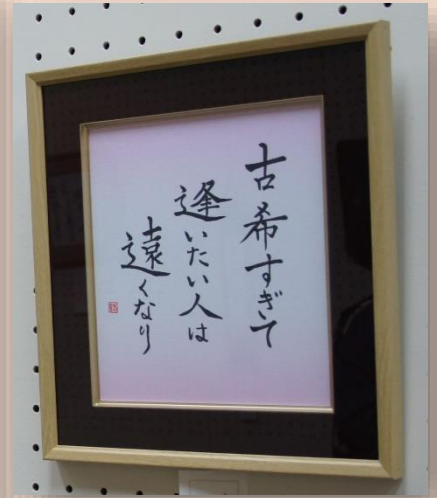 古希すぎて
逢いたい人は
遠くなり